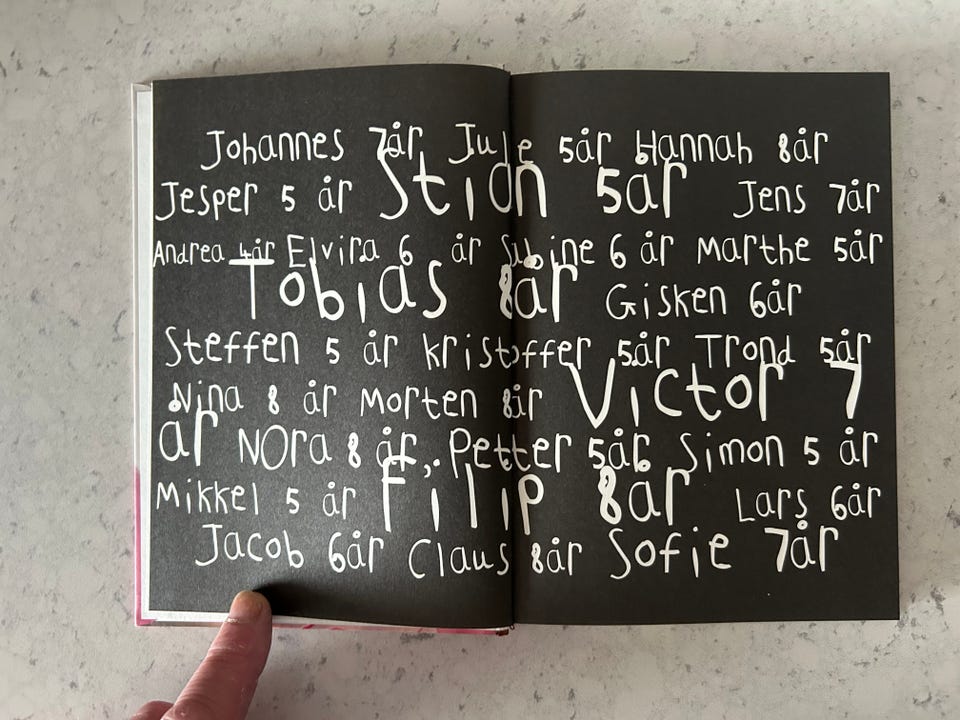 Johannes 7år Julie 5år Hannah 8år
Jesper 5 år Stian 5år Jens 7år
Andrea 4år Elvira 6 år Sabine 6 år Marthe 5år
Tobias 8år Gisken 6år
Steffen 5 år kristoffer 5år Trond 5år
Nina 8 år Morten 8år Victor 7
år NOra 8 år, Petter 5år Simon 5 år
Mikkel 5 år Filip 8år Lars 6år
Jacob 6år Claus 8år Sofie 7år